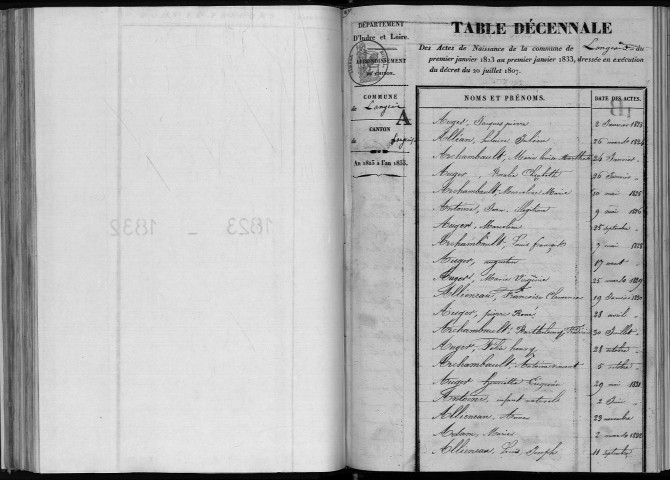 1823 - 1832
DÉPARTEMENT
D'Indre et Loire.
ARRONDISSEMENT
DE CHINON.
COMMUNE
de Langeais
CANTON
de Langeais
An 1823 à l'an 1833.
A
TABLE DÉCENNALE
Des Actes de Naissance de la commune de Langeais du
premier janvier 1823 au premier janvier 1833, dressée en exécution
du décret du 20 juillet 1807.
NOMS ET PRÉNOMS. DATE DES ACTES.
Auger, Jacques pierre 2 Janvier 1823
Allian, Julien 26 1824
Archambault, Marie Louise 24 février
Auger, 26 février
Archambault, Marie 10 mai 1825
Antoine, 9 mai 1826
Auger, 25 septembre
Archambault, Louis françois 7 mai 1828
Auger, augustin 17 aout
Auger, Marie Virginie 25 1829
Allieneau, Françoise 19 Janvier 1830
Auger, pierre René 28 avril
Archambault, 30 Juillet
Auger, 28 octobre
Archambault, 5 octobre
Auger Henriette Eugénie 29 mai 1831
Antoine, enfant naturel 2 Juin
Allieneau, 23 novembre
Adam, Marie 2 1832
Allieneau, Louis Joseph 11 septembre